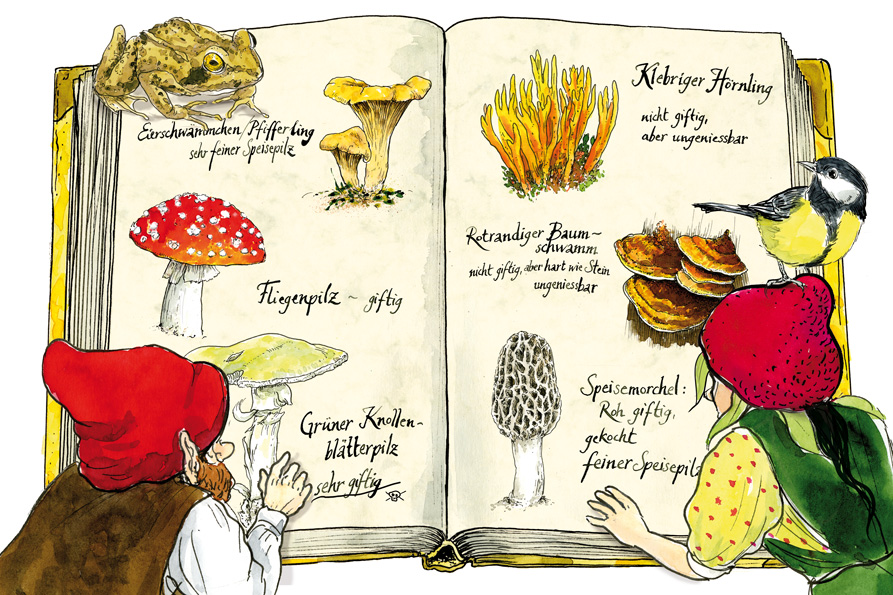 Eierschwämmchen/Pfifferling
sehr feiner Speisepilz
Fliegenpilz ~ giftig
Grüner Knollen-
blätterpilz
sehr giftig
Klebriger Hörnling
nicht giftig,
aber ungeniessbar
Rotrandiger Baum~
schwamm
nicht giftig, aber hart wie Stein
ungeniessbar
Speisemorchel:
Roh giftig,
gekocht
feiner Speisepilz